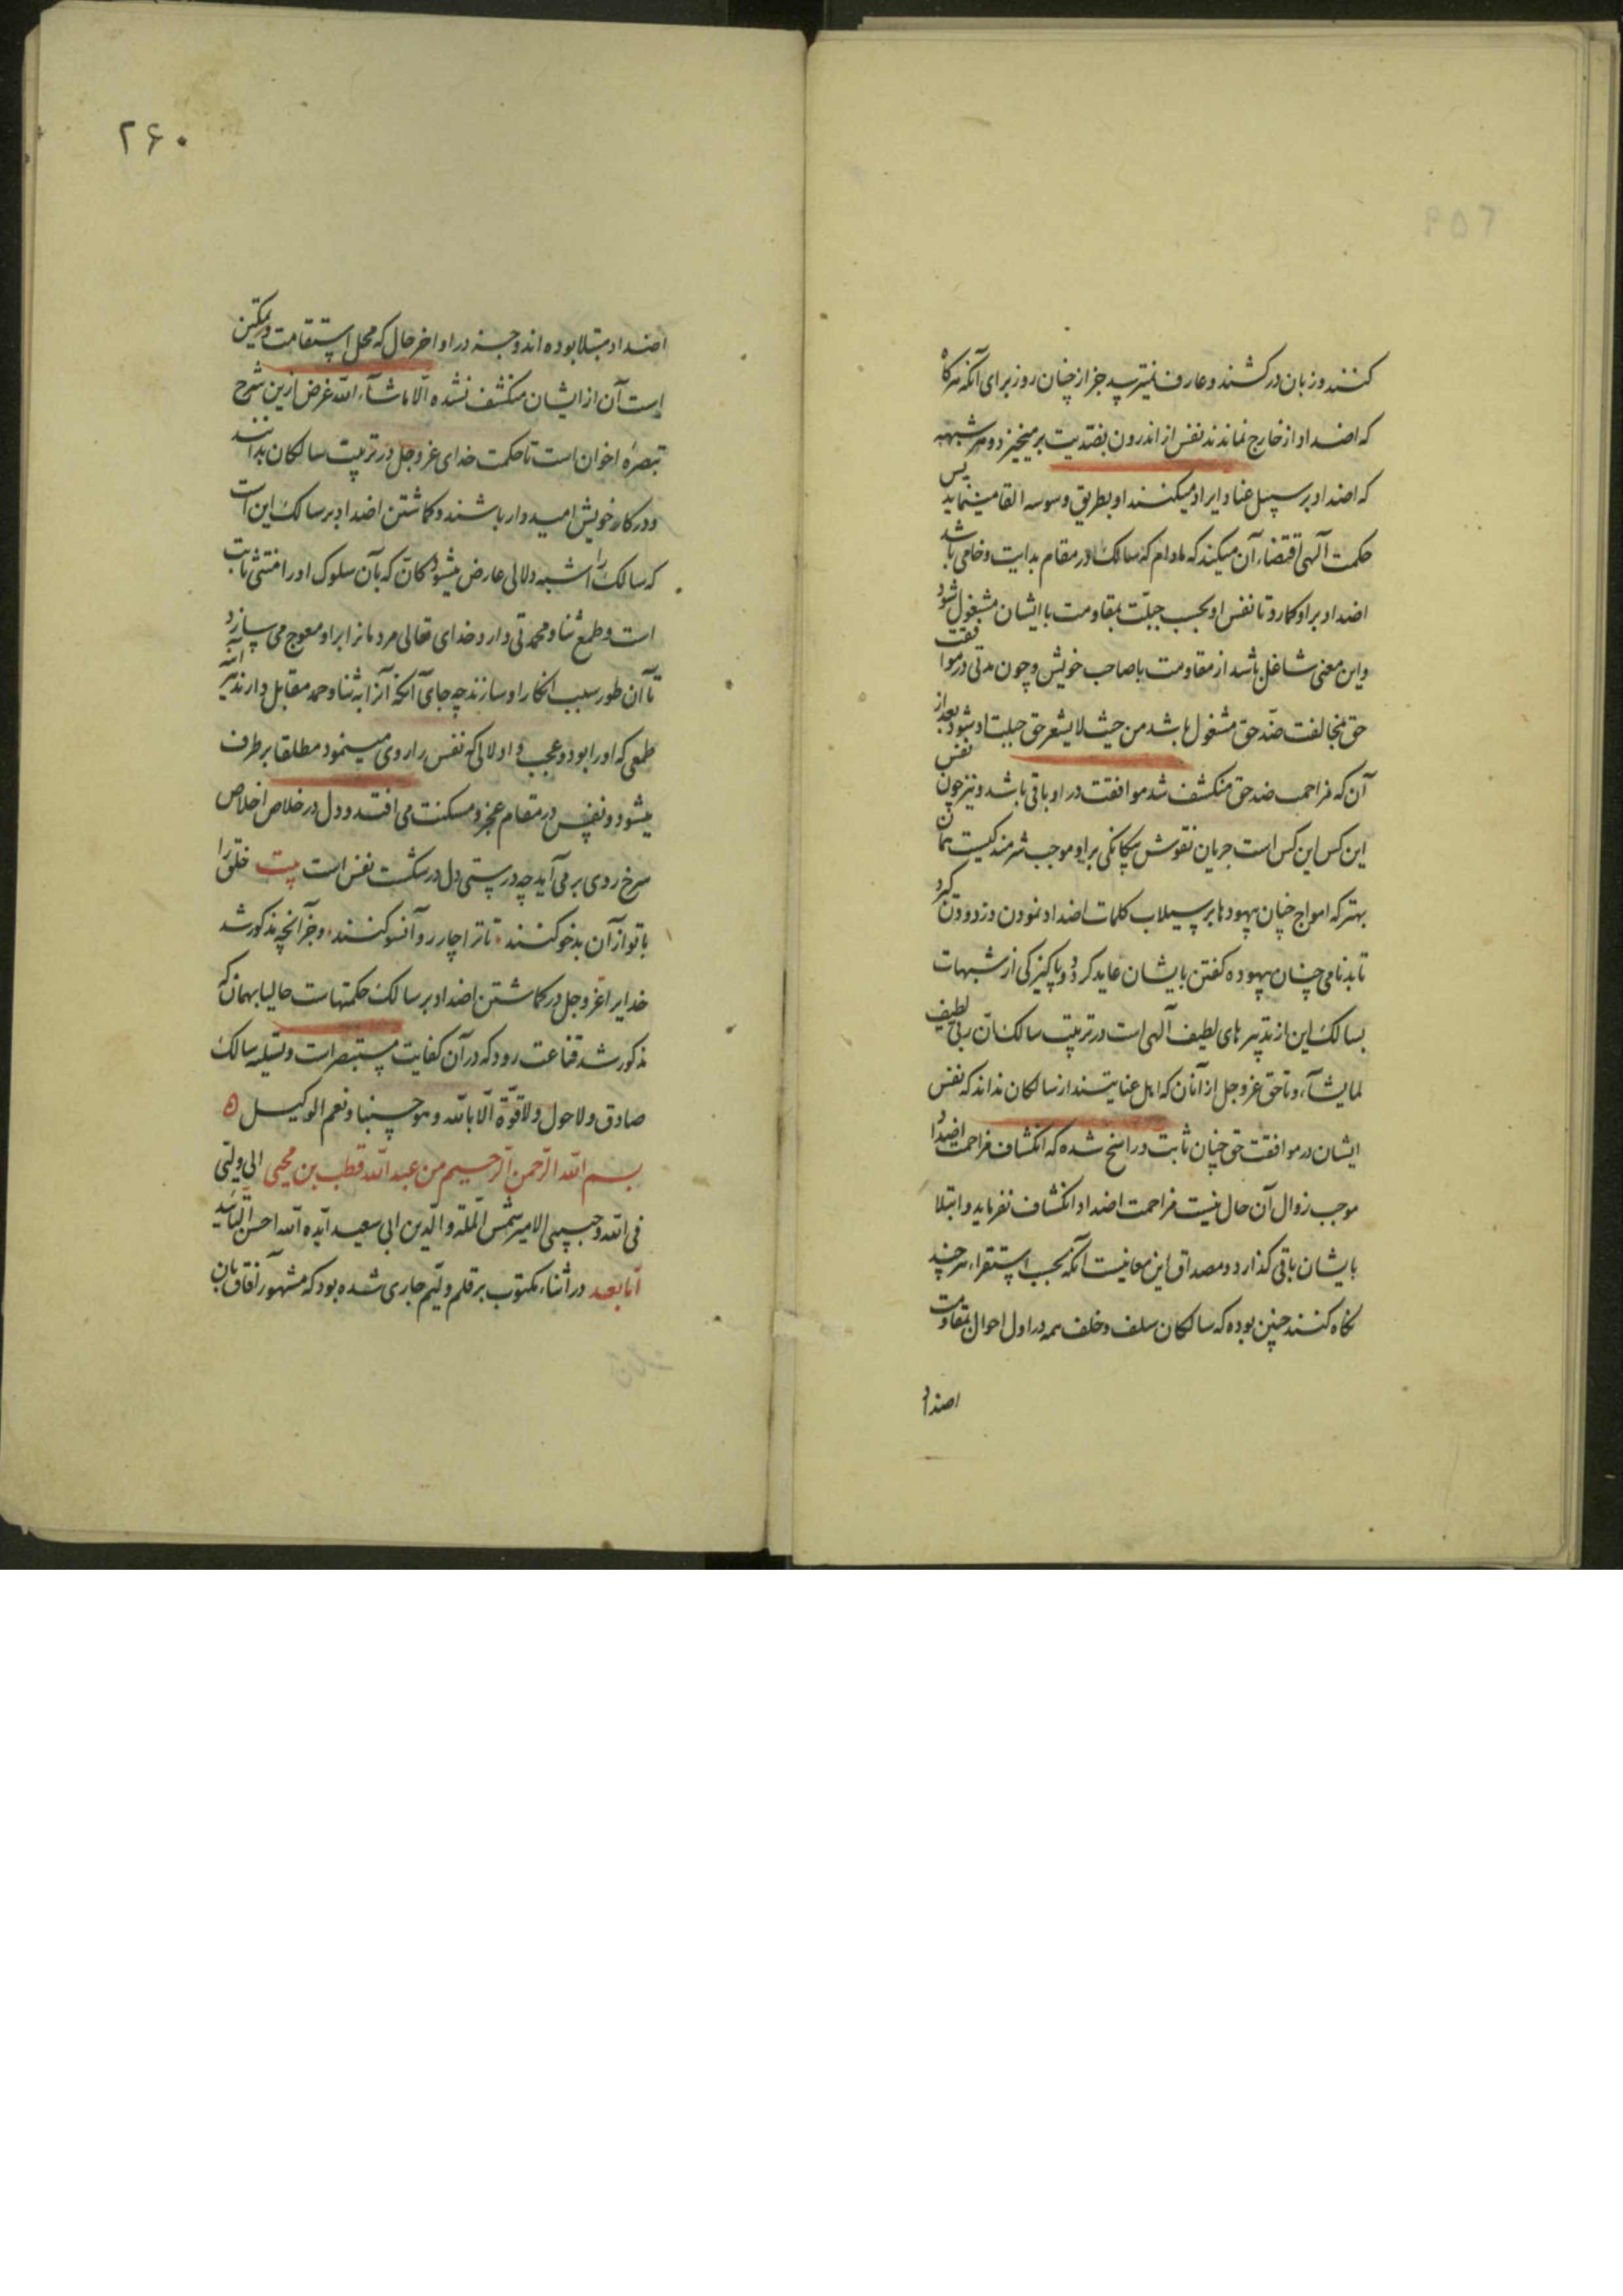 کنند و زبان درکشند و عارف نمیترسد جز از چنان روز برای آنکه هرکاه
که اضداد از خارج نماندند نفس از اندرون بضدیت برمیخیزد و هر شبهه
که اضداد بر سبیل عناد ایراد میکنند او بطریق وسوسه القا مینماید پس
حکمت آلهی اقتضاء آن میکند که مادام که سالک در مقام بدایت و خامی باشد
اضداد بر او کمارد تا نفس او بحسب جبلّت بمقاومت با ایشان مشغول شود
و این معنی شاغل باشد از مقاومت با صاحب خویش و چون مدتی در موافقت
حق بمخالفت ضدّ حق مشغول باشد من حیث لا یشعر حق جبلیت او شود بعد از
آن که مزاحمت ضد حق منکشف شد موافقت در او باقی باشد و نیز چون نفس
این کس این کس است جریان نقوش بیکانکی بر او موجب شرمندکیست همان
بهتر که امواج چنان بیهودها بر سیلاب کلمات اضداد نمودن و زدودن کیرد
تا بدنامی چنان بیهوده کفتن بایشان عاید کردد و پاکیزکی از شبهات
بسالک این از تدبیرهای لطیف آلهی است در تربیت سالکان ربی لطیف
لما یشآء و تا حق عز و جل از آنان که اهل عنایتند از سالکان نداند که نفس
ایشان در موافقت حق چنان ثابت و راسخ شده که انکشاف مزاحمت اضداد
موجب زوال آن حال نیست مزاحمت اضداد انکشاف نفرماید و ابتلا
بایشان باقی کذارد و مصداق این معانیست آنکه بحسب استقراء هر چند
نکاه کنند چنین بوده که سالکان سلف و خلف همه در اول احوال بمقاومت
اضداد
۲۶۰
اضداد مبتلا بوده اند و جز در اواخر حال که محل استقامت و تمکین
است آن از ایشان منکشف نشده الّا ماشآء الله غرض ازین شرح
تبصرهٔ اخوان است تا حکمت خدای عز و جل در تربیت سالکان بدانند
و در کار خویش امیدوار باشند و کماشتن اضداد بر سالک این است
که سالک را شبه دلالی عارض میشود کان که بآن سلوک او را منتثی ثابت
است و طمع ثنا و محمدتی دارد خدای تعالی مردمانرا بر او معوج می سازد
تا آن طور سبب انکار او سازند چه جای آنکه آنرا به ثنا و حمد مقابل دارند
طمعی که او را بود و عجب و اولالی که نفس را روی مینمود مطلقا بر طرف
میشود و نفس در مقام عجز و مسکنت می افتد و دل در خلاص اخلاص
سرخ روی بر می آید چه درستی دل در شکست نفس است بیت خلق را
با تو از آن بدخو کنند ۰ تا ترا چار رو آنسو کنند ۰ و جز آنچه مذکور شد
خدایرا عز و جل در کماشتن اضداد بر سالک حکمتهاست حالیا بهمان که
مذکور شد قناعت رود که در آن کفایت مستبصر است و تسلیه سالک
صادق و لا حول و لا قوّة الّا بالله و هو حسبنا و نعم الوکیل ه
بسم الله الرّحمن الرّحیم من عبد الله قطب بن محیی الی ولیّی
فی الله و حبیبی الامیر شمس الملّة و الدّین ابی سعید ایّده الله احسن التّأیید
امّا بعد در اثناء مکتوب بر قلم ولیّم جاری شده بود که مشهور آفاق بان